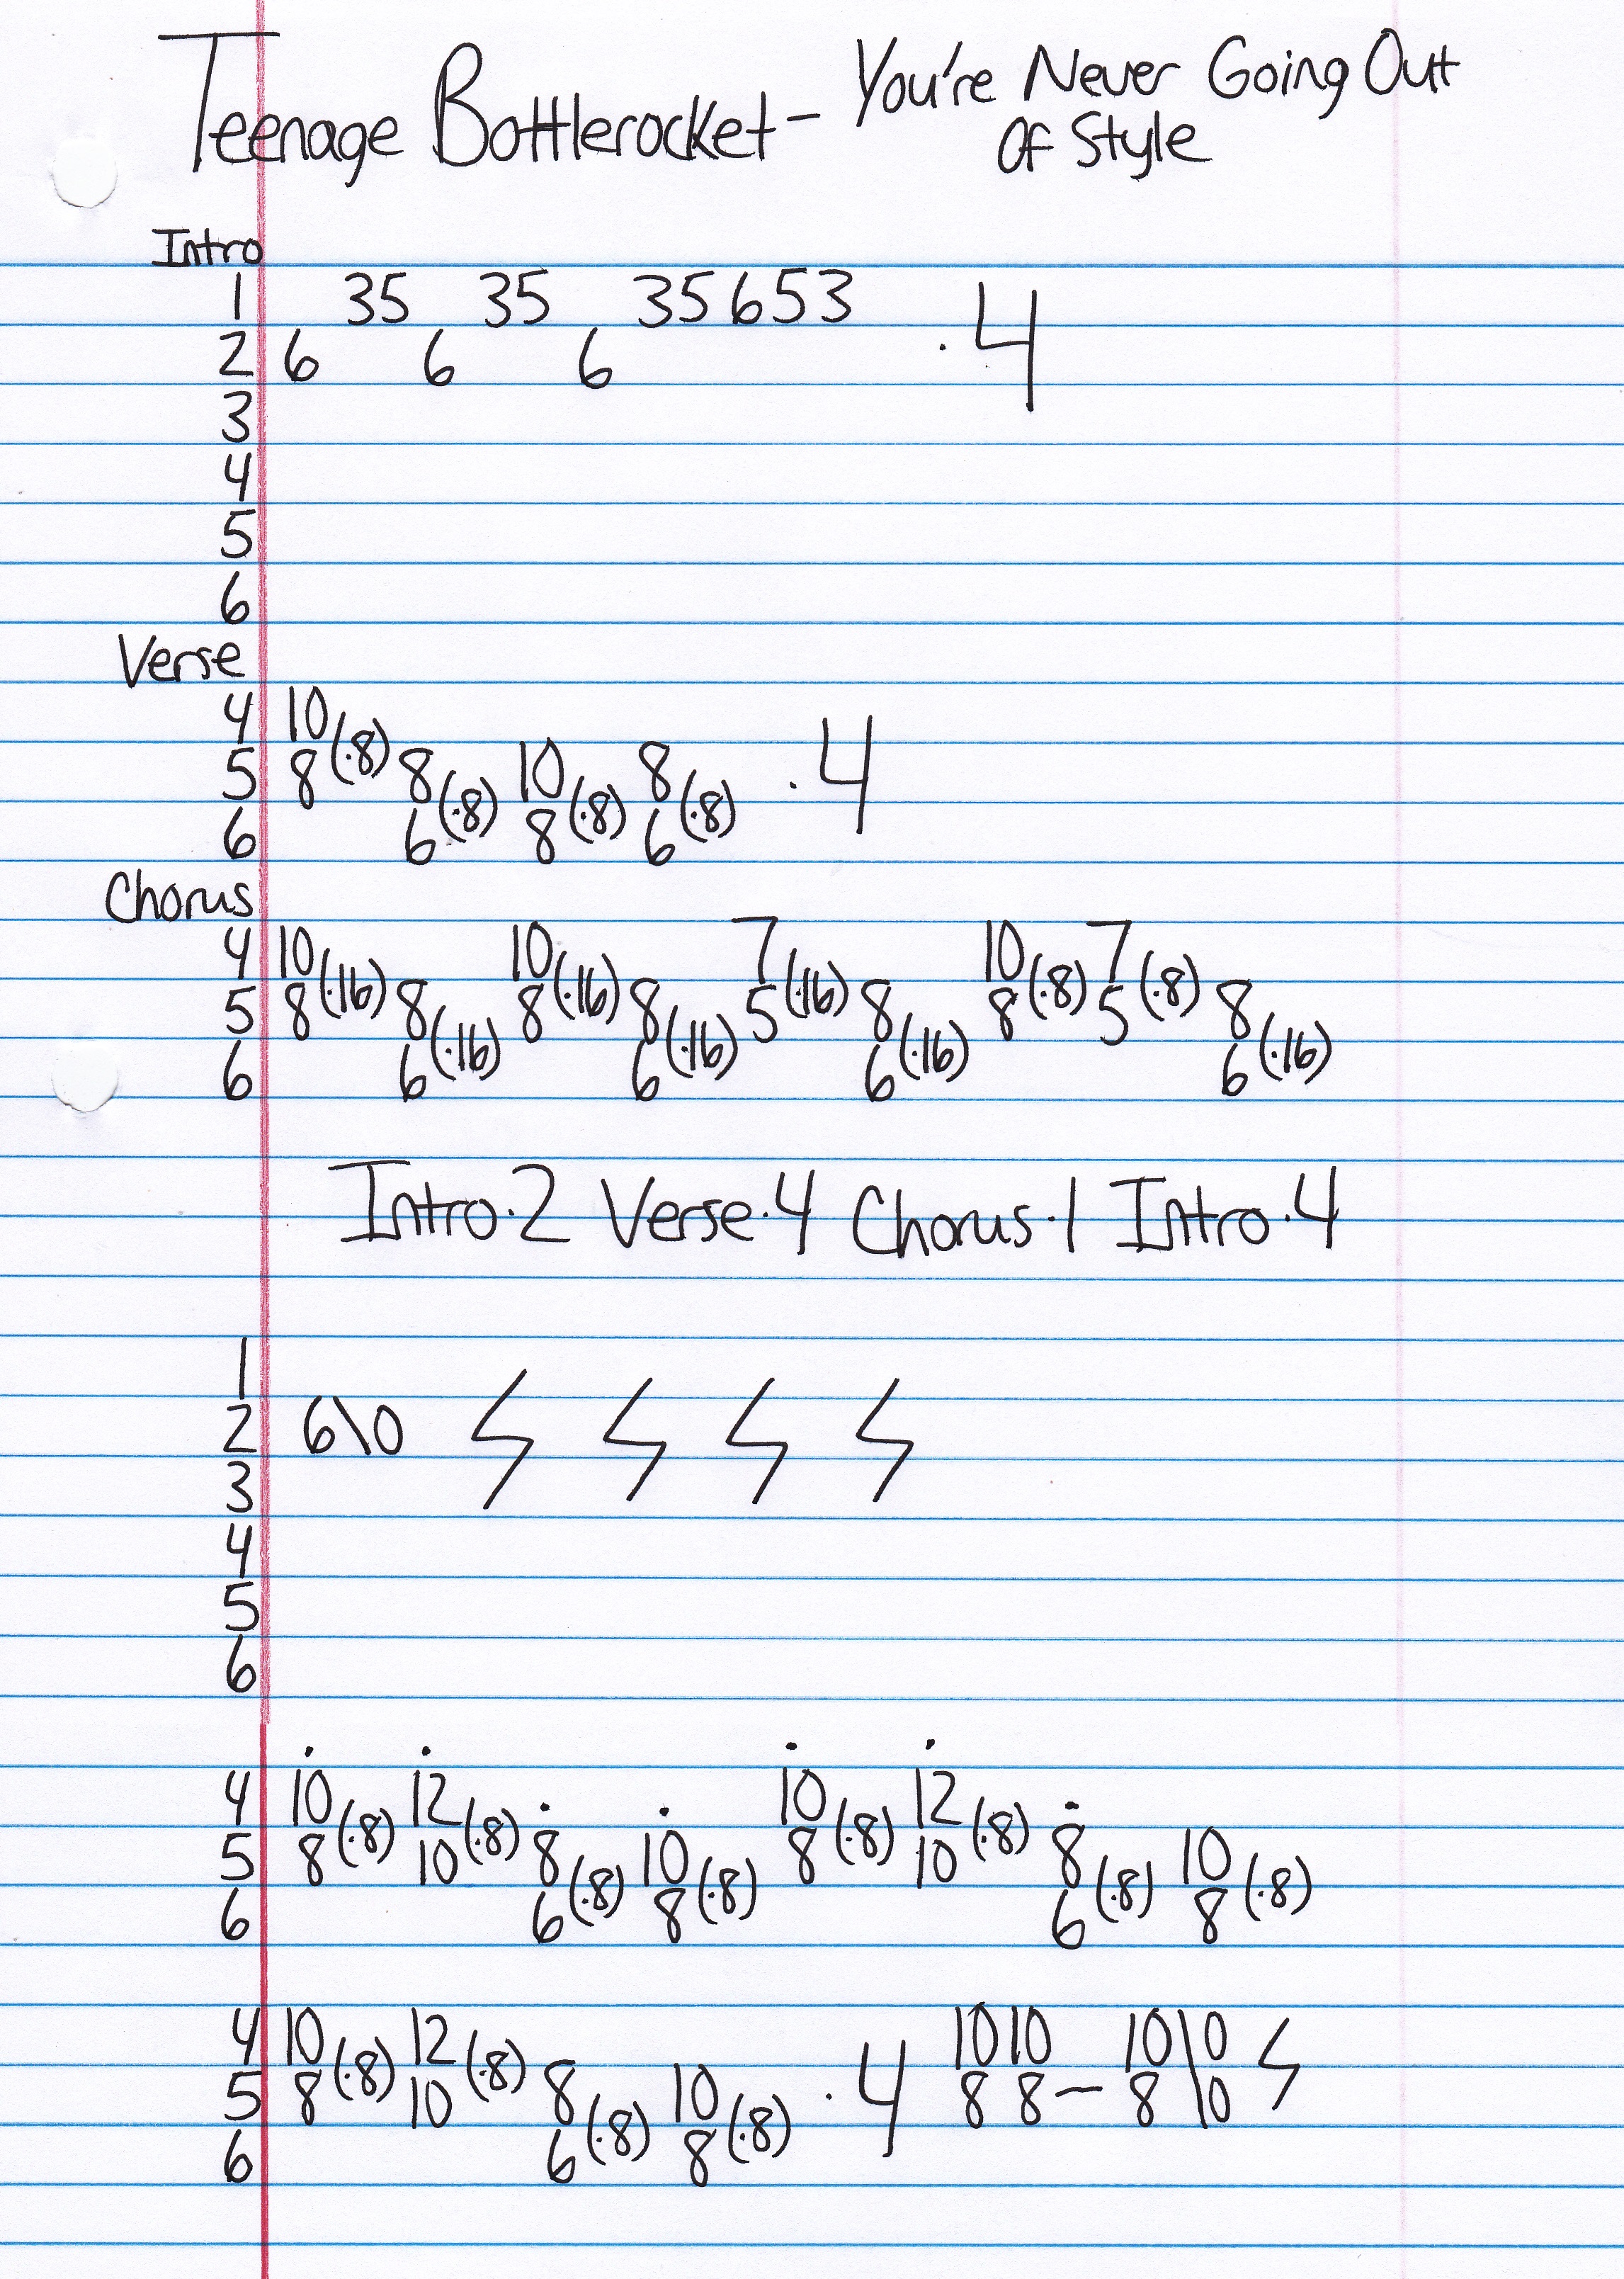 Teenage Bottlerocket - You're Never Going Out
Of Style
Intro
1 35 35 35653 .4
2 6 6 6
3
4
5
6
Verse
4 10
5 8(.8) 8 10 8 .4
6 6(.8) 8(.8) 6(.8)
Chorus
4 10 10 7 10 7
5 8(.16) 8 8(.16) 8 5(.16) 8 8(.8) 5(.8) 8
6 6(.16) 6(.16) 6(.16) 6(.16)
Intro.2 Verse.4 Chorus.1 Intro.4
1
2 6\0
3
4
5
6
. . . .
4 10 12 . . 10 12 .
5 8(.8) 10(.8) 8 10 8(.8) 10(.8) 8 10
6 6(.8) 8(.8) 6(.8) 8(.8)
4 10 12 10 10 10\0
5 8(.8) 10(.8) 8 10 .4 8 8 - 8\0
6 6(.8) 8(.8)